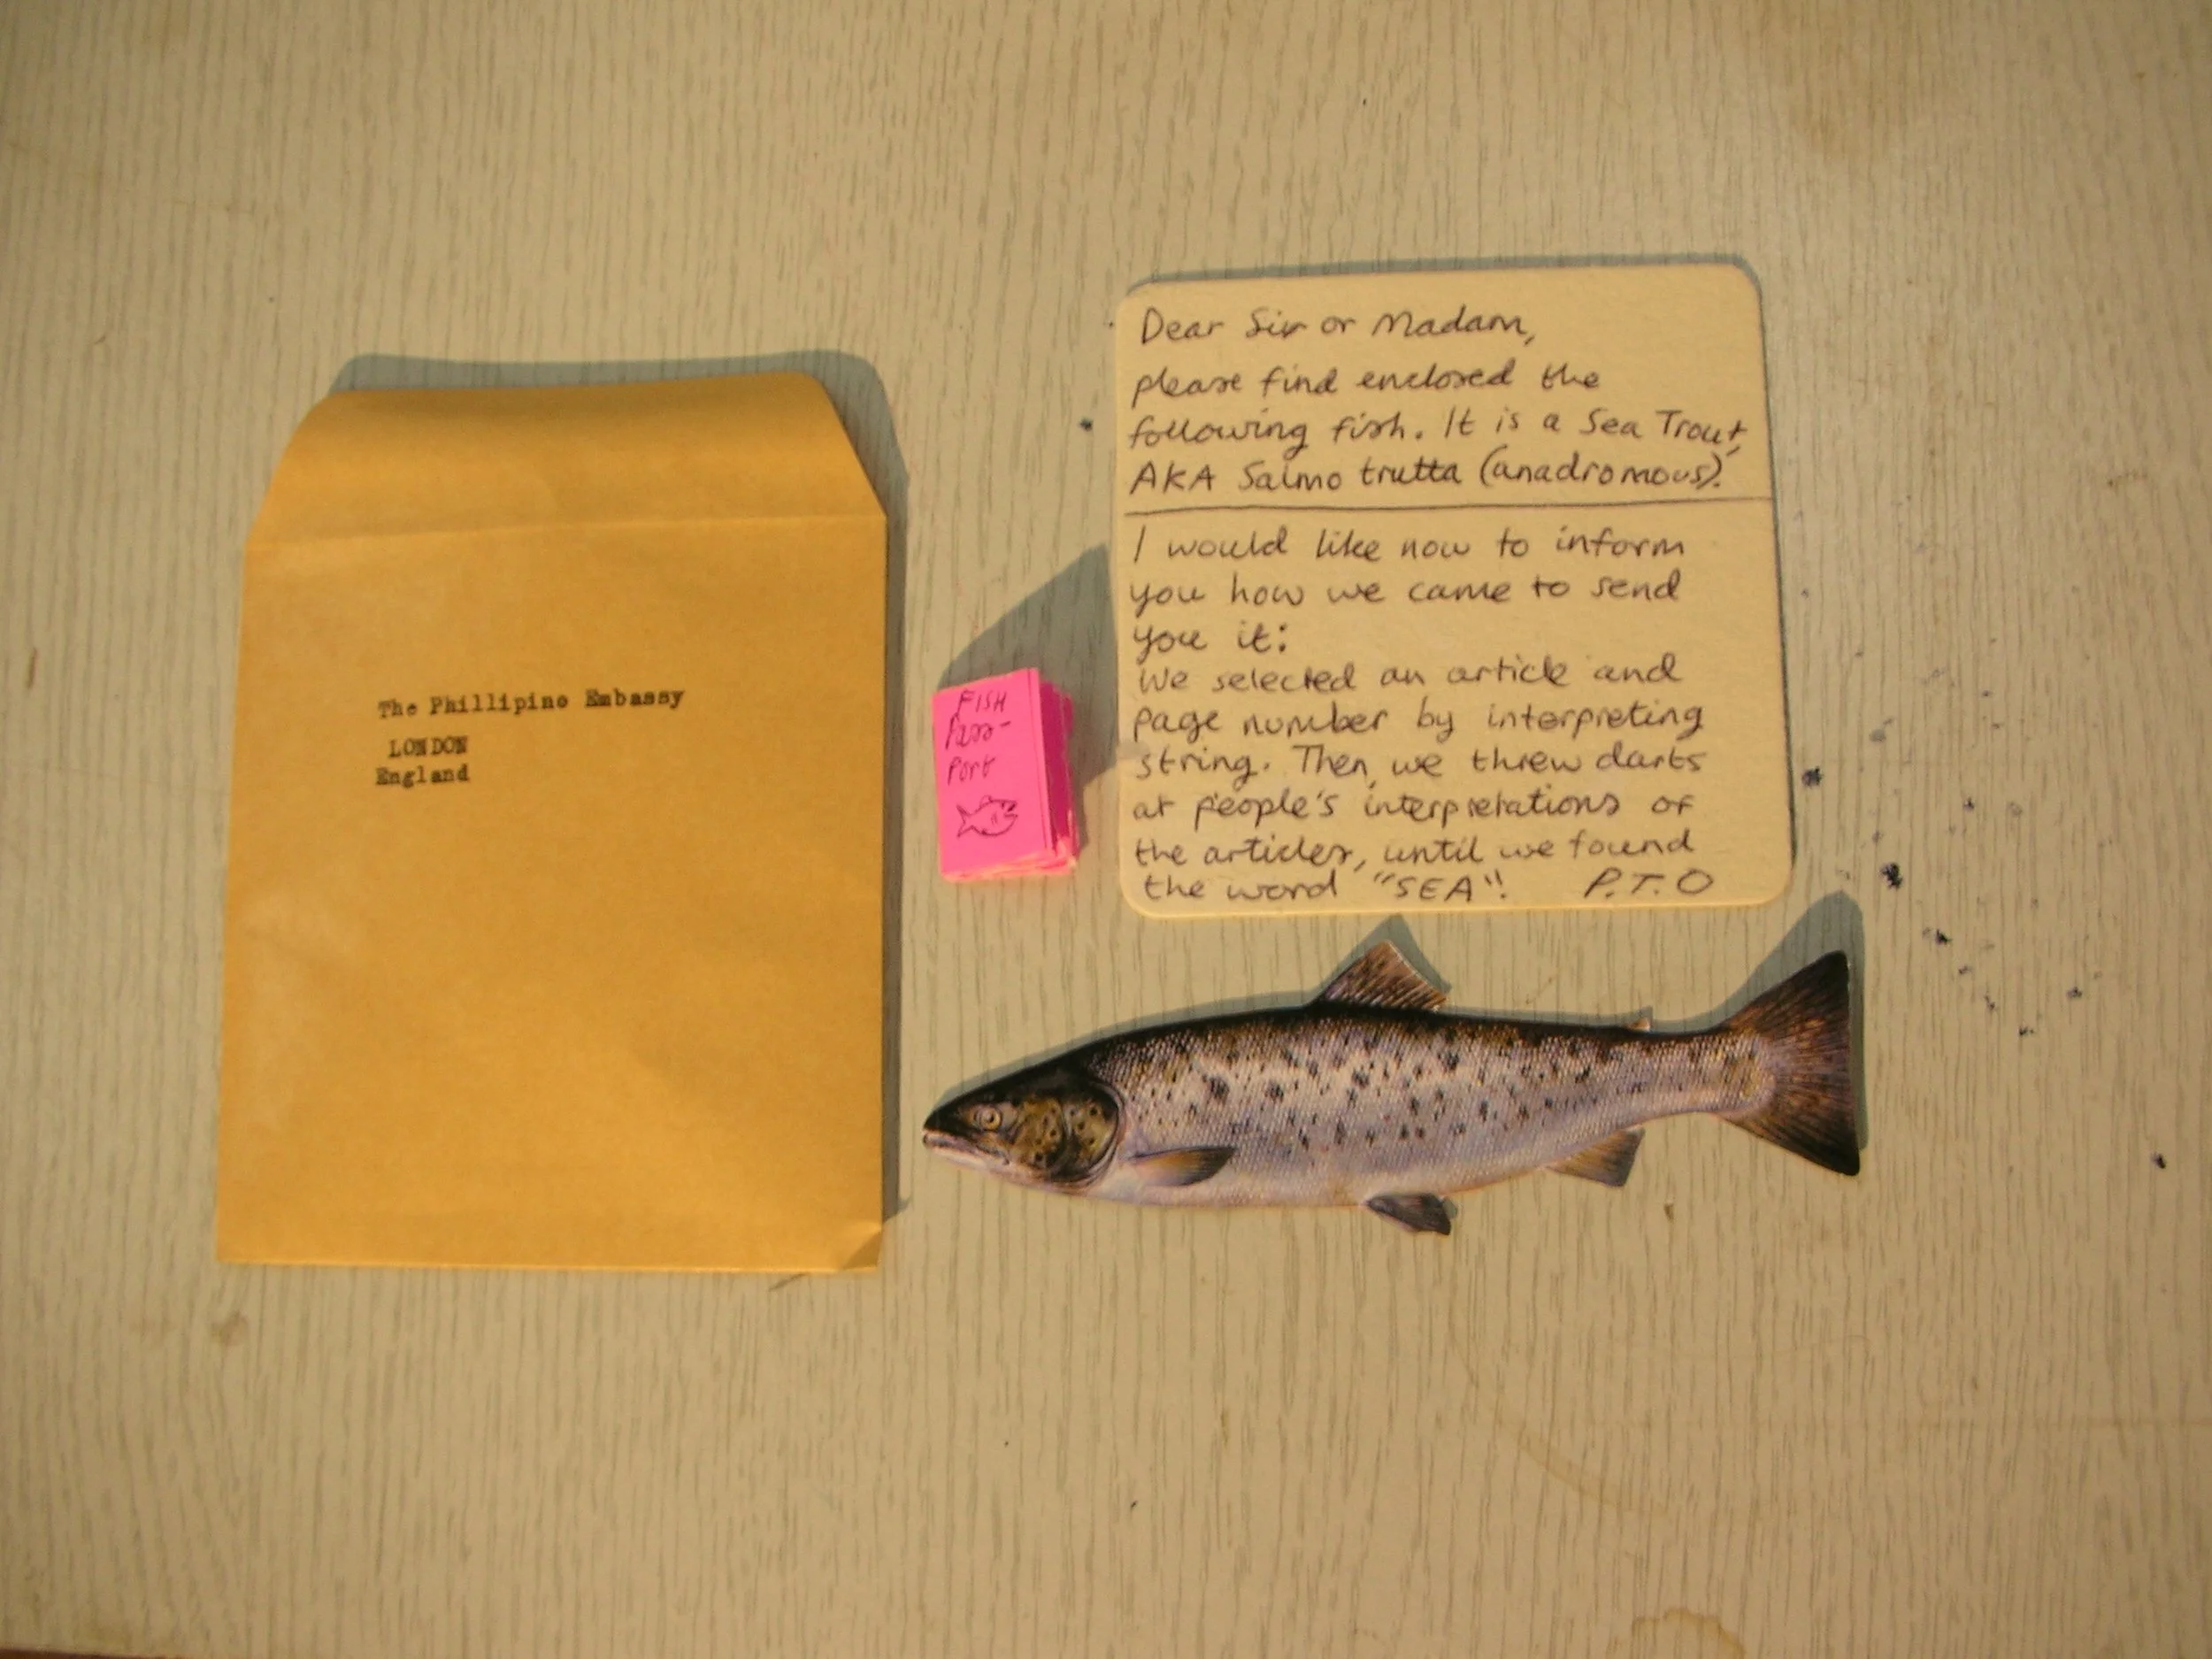 The Phillipino Embassy
LONDON
England
FISH
Pass-
Port
Dear Sir or Madam,
please find enclosed the
following fish. It is a Sea Trout,
AKA Salmo trutta (anadromous).
I would like now to inform
you how we came to send
you it:
We selected an article and
page number by interpreting
string. Then, we threw darts
at people's interpretations of
the articles, until we found
the word "SEA". P.T.O